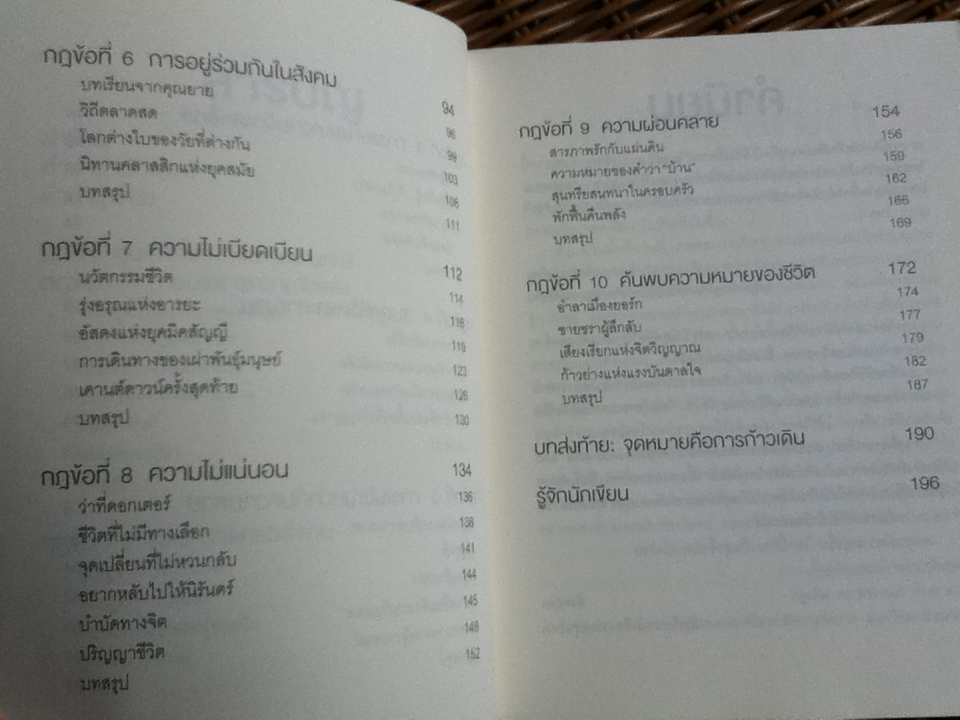 กฎข้อที่ 6 การอยู่ร่วมกันในสังคม 94
บทเรียนจากคุณยาย 96
วิถีตลาดสด 99
โลกต่างใบของวัยที่ต่างกัน 103
นิทานคลาสสิกแห่งยุคสมัย 106
บทสรุป 111
กฎข้อที่ 7 ความไม่เบียดเบียน 112
นวัตกรรมชีวิต 114
รุ่งอรุณแห่งอารยะ 116
อัสดงแห่งยุคมิคสัญญี 119
การเดินทางของเผ่าพันธุ์มนุษย์ 123
เคานต์ดาวน์ครั้งสุดท้าย 128
บทสรุป 130
กฎข้อที่ 8 ความไม่แน่นอน 134
ว่าที่ดอกเตอร์ 136
ชีวิตที่ไม่มีทางเลือก 138
จุดเปลี่ยนที่ไม่หวนกลับ 141
อยากหลับไปให้นิรันดร์ 144
บำบัดทางจิต 145
ปริญญาชีวิต 148
บทสรุป 152
กฎข้อที่ 9 ความผ่อนคลาย 154
สารภาพรักกับแผ่นดิน 156
ความหมายของคำว่า "บ้าน" 159
สุนทรียสนทนาในครอบครัว 162
พักฟื้นคืนพลัง 166
บทสรุป 169
กฎข้อที่ 10 ค้นพบความหมายของชีวิต 172
อำลาเมืองยอร์ก 174
ชายชราผู้ลึกลับ 177
เสียงเรียกแห่งจิตวิญญาณ 179
ก้าวย่างแห่งแรงบันดาลใจ 182
บทสรุป 187
บทส่งท้าย: จุดหมายคือการก้าวเดิน 190
รู้จักนักเขียน 196